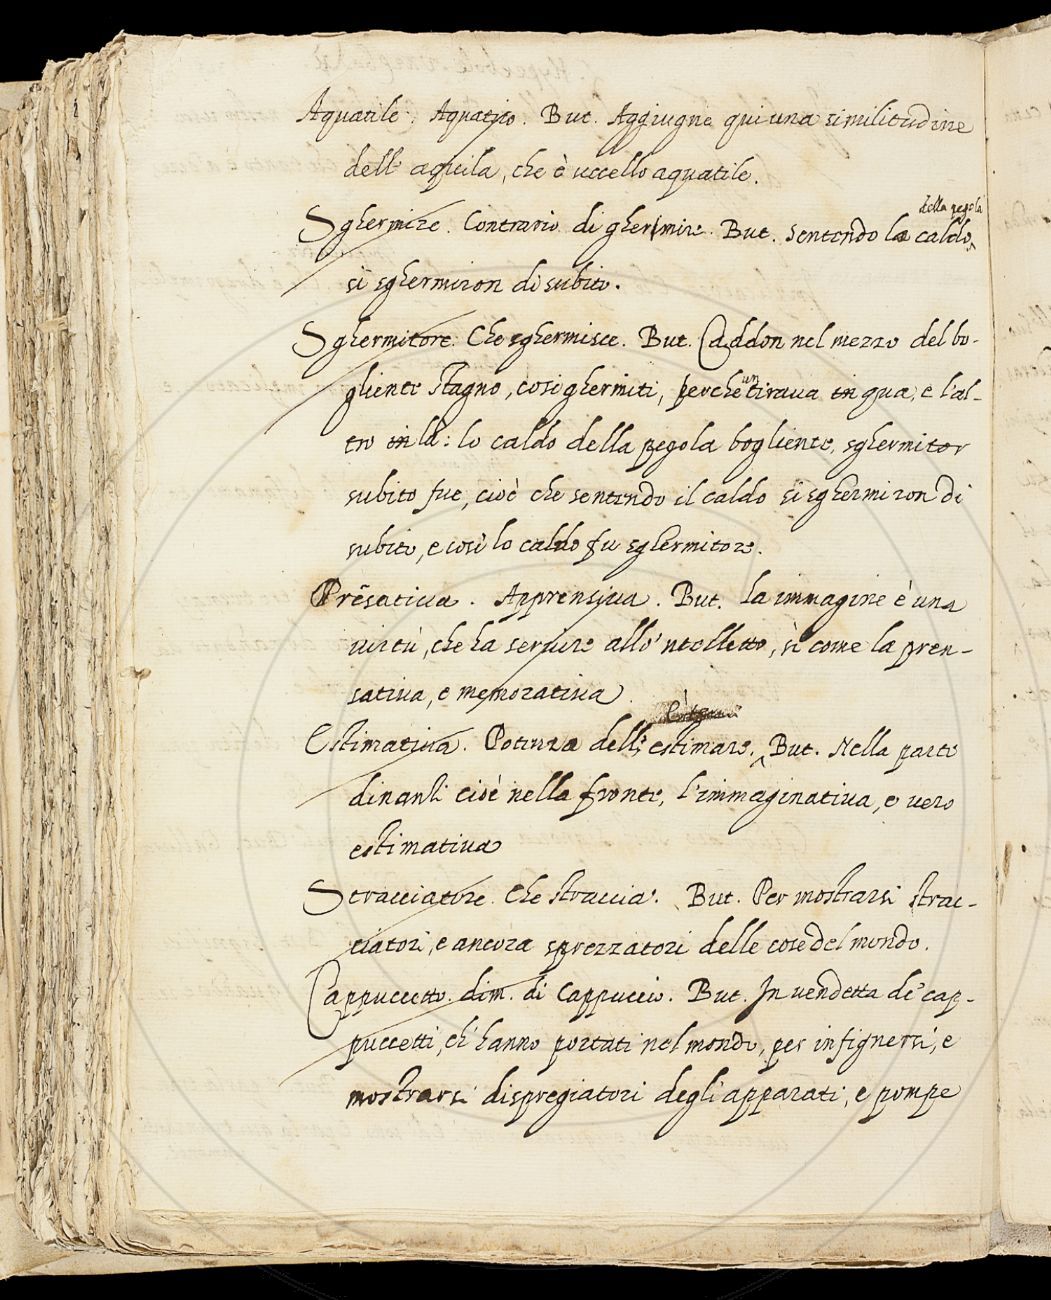 Aquatile. Aquatico. But. Aggiugne qui una similitudine
dell' aquila, che è uccello aquatile.
della pegola
Sghermire. Contrario di ghermire. But. Sentendo lo caldo
si sghermiron di subito.
Sghermitore. Che sghermisce. But. Caddon nel mezzo del bo-
gliente stagno, così ghermiti, perche un tirava in qua, e l'al-
tro in là: lo caldo della pegola bogliente, sghermitor
subito fue, cioè che sentendo il caldo si sghermiron di
subito, e così lo caldo fu sghermitore.
Prēsativa. Apprensiva. But. La immagine è una
virtù, che ha servire allo 'ntelletto, sì come la pren-
sativa, e memorativa
Estimativa. Potenza dell' estimare. But. Nella parte
dinanti cioè nella fronte, l'immaginativa, e vero
estimativa
Stracciatore. Che straccia. But. Per mostrarsi strac-
ciatori, e ancora sprezzatori delle cose del mondo.
Cappuccetto. dim. di Cappuccio. But. In vendetta de' cap-
puccetti, ch' hanno portati nel mondo, per infignersi, e
mostrarsi dispregiatori degli apparati, e pompe